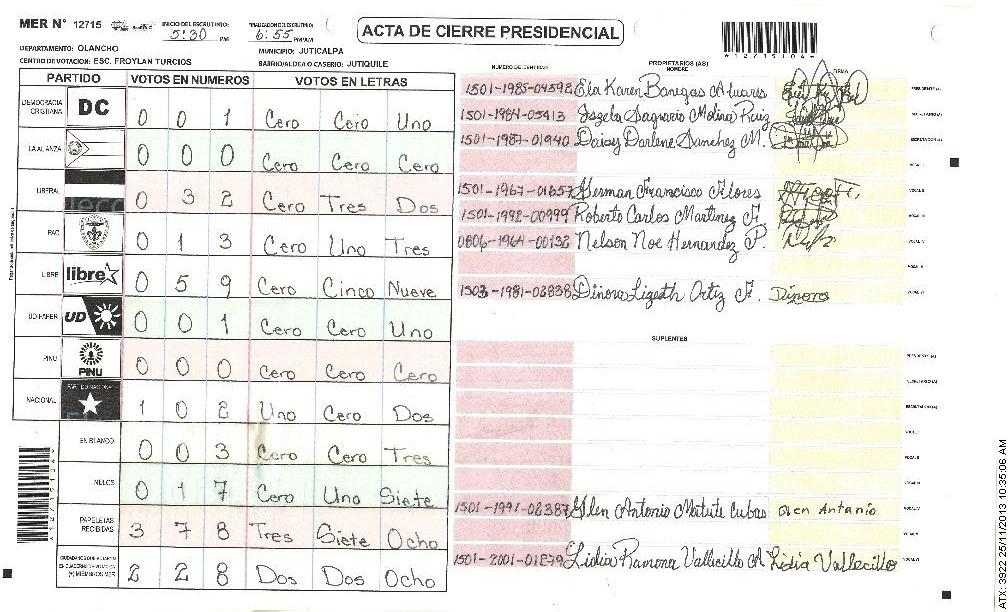 MER N° 12715
INICIO DEL ESCRUTINIO:
5:30 PM
FINALIZACION DEL ESCRUTINIO:
6:55 PM/AM
ACTA DE CIERRE PRESIDENCIAL
*12715104*
DEPARTAMENTO: OLANCHO
MUNICIPIO: JUTICALPA
CENTRO DE VOTACION: ESC. FROYLAN TURCIOS
BARRIO/ALDEA O CASERIO: JUTIQUILE
PARTIDO VOTOS EN NUMEROS VOTOS EN LETRAS
DEMOCRACIA CRISTIANA DC 0 0 1 Cero Cero Uno
LA ALIANZA 0 0 0 Cero Cero Cero
LIBERAL 0 3 2 Cero Tres Dos
PAC 0 1 3 Cero Uno Tres
LIBRE libre 0 5 9 Cero Cinco Nueve
UD FAPER UD 0 0 1 Cero Cero Uno
PINU PINU 0 0 0 Cero Cero Cero
NACIONAL PARTIDO NACIONAL 1 0 2 Uno Cero Dos
EN BLANCO 0 0 3 Cero Cero Tres
NULOS 0 1 7 Cero Uno Siete
PAPELETAS RECIBIDAS 3 7 8 Tres Siete Ocho
CIUDADANOS QUE VOTARON EN CUADERNO DE VOTACION (+) MIEMBROS MER 2 2 8 Dos Dos Ocho
NUMERO DE IDENTIDAD PROPIETARIOS (AS) NOMBRE FIRMA
1501-1985-04592 Ela Karen Banegas Alvares PRESIDENTE (A)
1501-1984-05413 Iszela Sagrario Molina Ruiz SECRETARIO (A)
1501-1987-01940 Daisy Darlene Sanchez M. ESCRUTADOR (A)
VOCAL I
1501-1967-01657 Herman Francisco Flores VOCAL II
1501-1992-00999 Roberto Carlos Martinez F. VOCAL III
0806-1964-00132 Nelson Noe Hernandez P. VOCAL IV
VOCAL V
1503-1981-02838 Dinora Lizeth Ortiz F. Dinora VOCAL VI
SUPLENTES
PRESIDENTE (A)
SECRETARIO (A)
ESCRUTADOR (A)
VOCAL I
VOCAL II
VOCAL III
1501-1991-02387 Glen Antonio Matute Cubas Glen Antonio VOCAL IV
VOCAL V
1501-2001-01279 Lidia Ramona Vallecillo A Lidia Vallecillo VOCAL VI
ATX: 3922 25/11/2013 10:35:06 AM